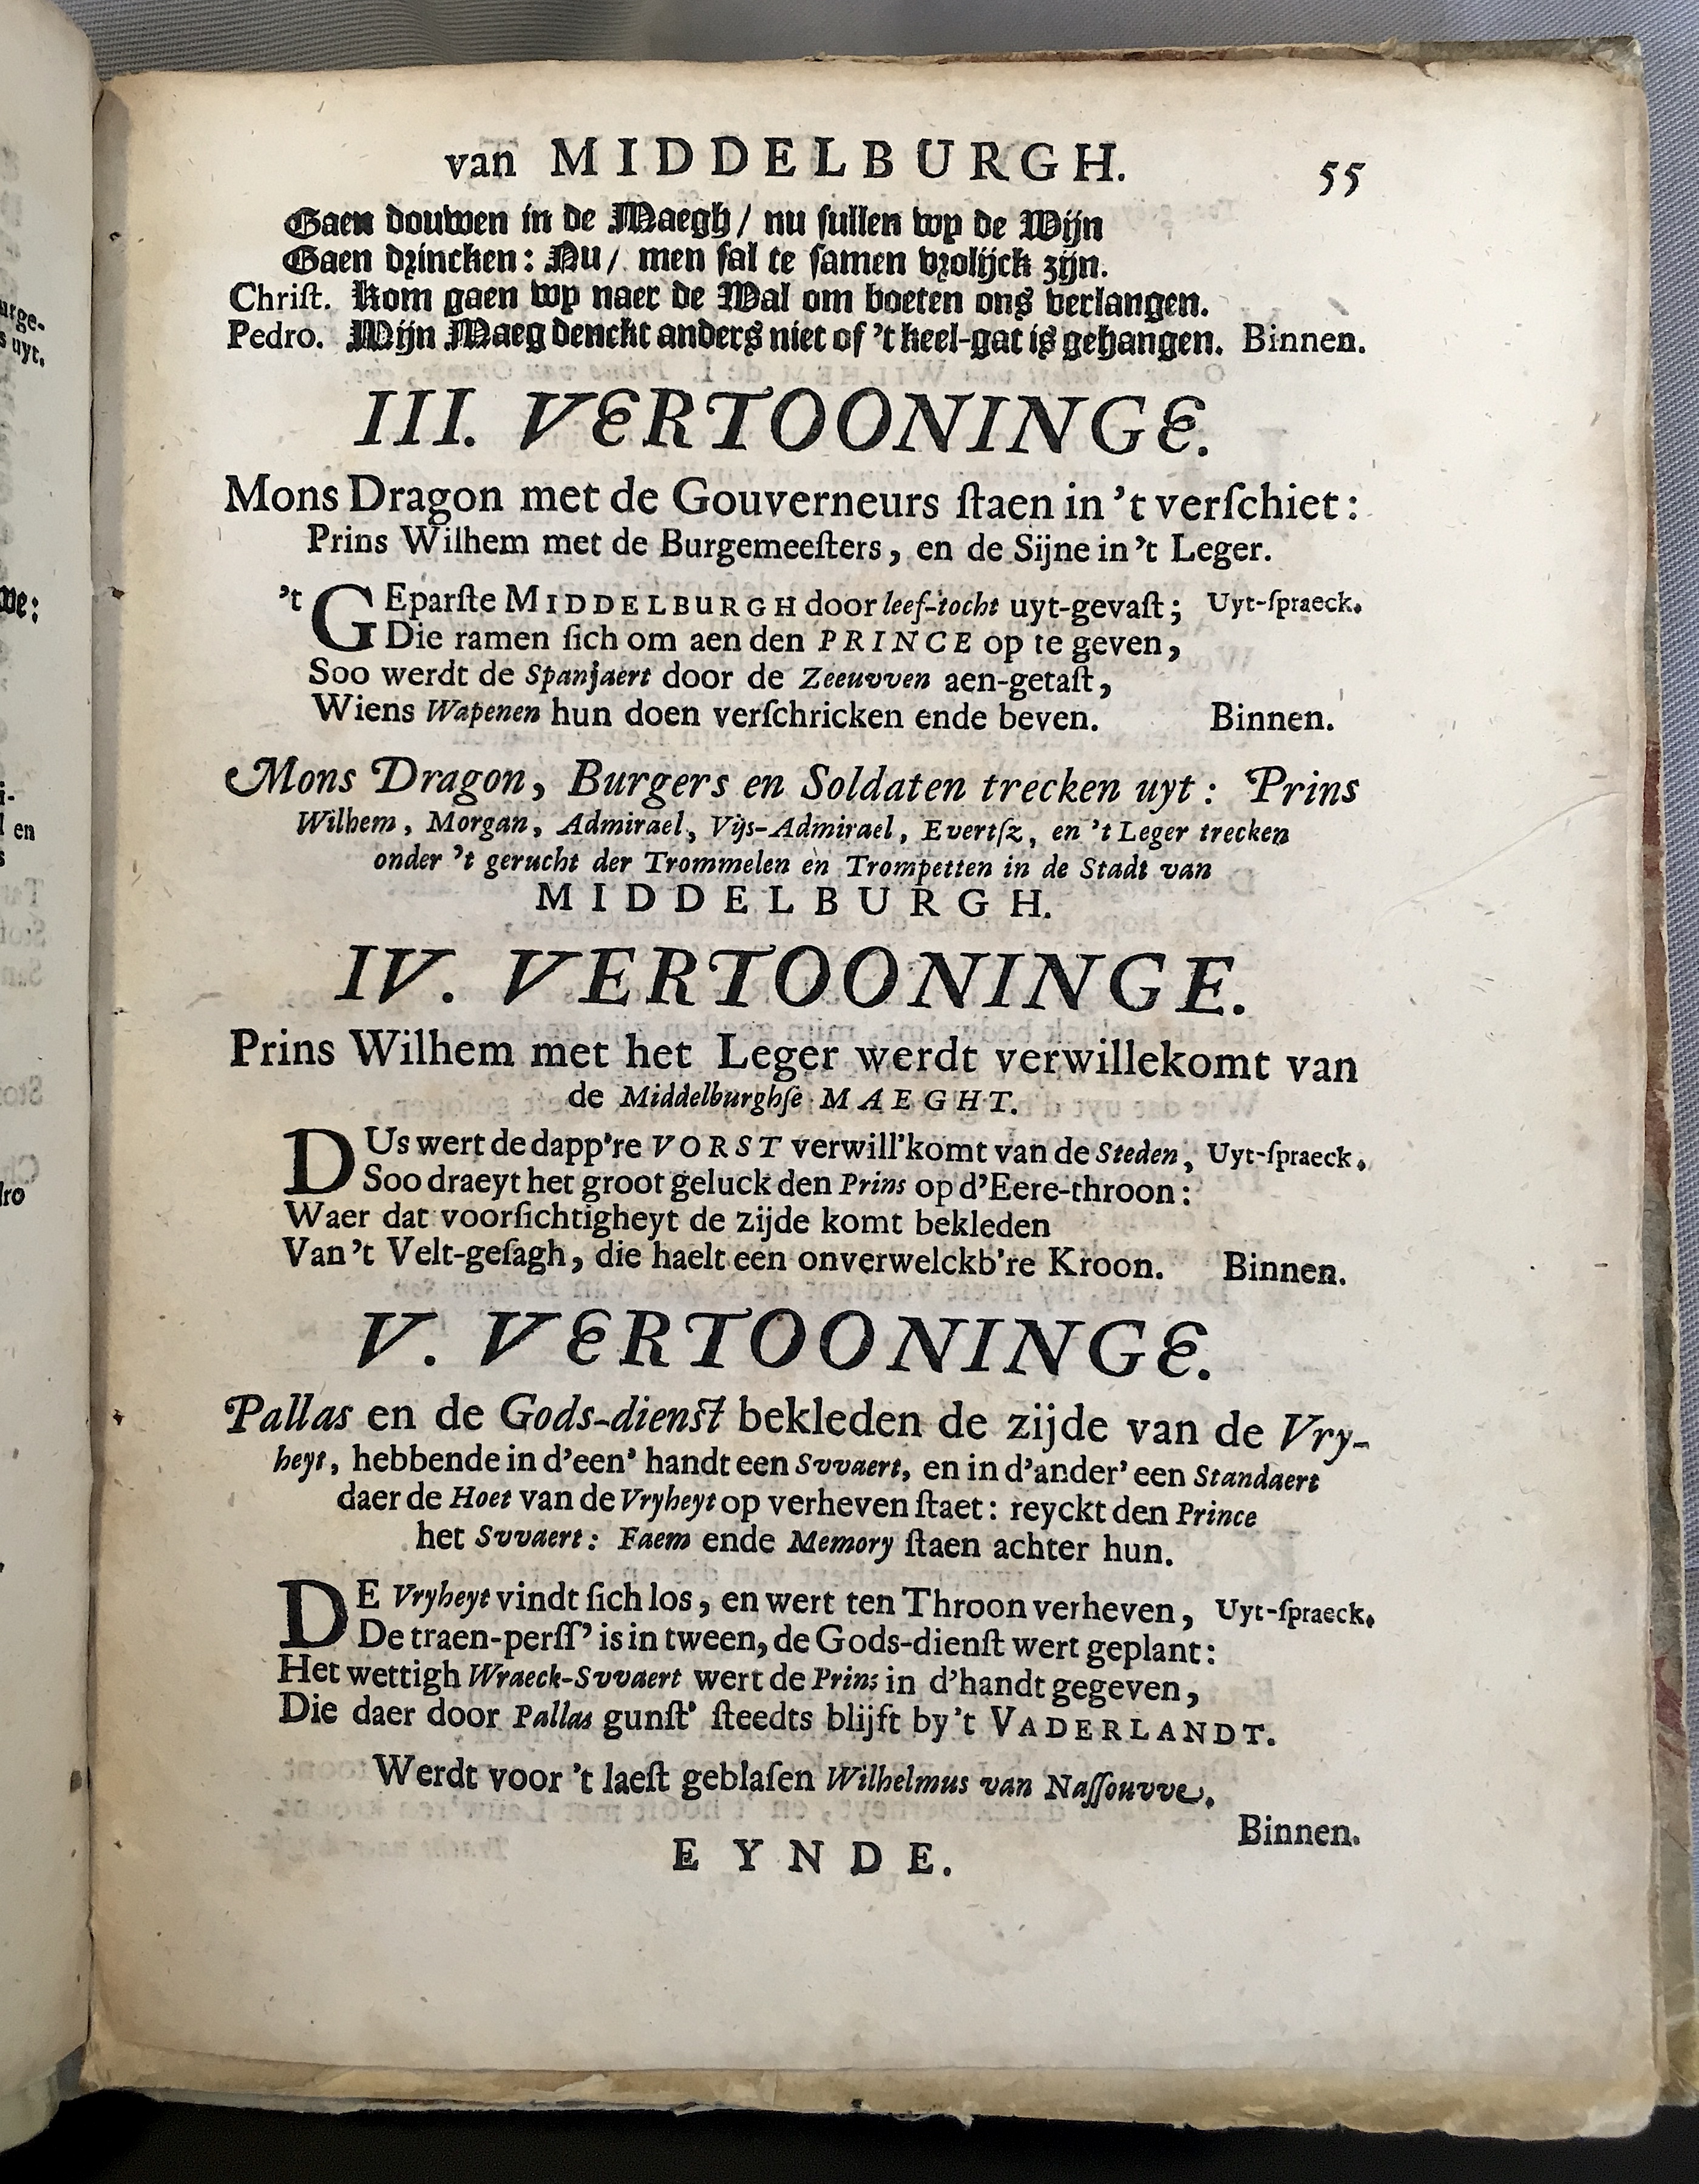 van MIDDELBURGH. 55
Gaen douwen in de Maegh/ nu sullen wy de Wijn
Gaen drincken: Nu/ men sal te samen vrolijck zijn.
Chriſt. Kom gaen wy naer de Wal om boeten ons verlangen.
Pedro. Mijn Maeg denckt anders niet of 't keel-gat is gehangen. Binnen.
III. VERTOONINGE.
Mons Dragon met de Gouverneurs ſtaen in 't verſchiet:
Prins Wilhem met de Burgemeeſters, en de Sijne in 't Leger.
'tGEparſte MIDDELBURGH door leef-tocht uyt-gevaſt; Uyt-ſpraeck.
Die ramen ſich om aen den PRINCE op te geven,
Soo werdt de Spanjaert door de Zeeuvven aen-getaſt,
Wiens Wapenen hun doen verſchricken ende beven. Binnen.
Mons Dragon, Burgers en Soldaten trecken uyt: Prins
Wilhem, Morgan, Admirael, Vijs-Admirael, Evertſz, en 't Leger trecken
onder 't gerucht der Trommelen en Trompetten in de Stadt van
MIDDELBURGH.
IV. VERTOONINGE.
Prins Wilhem met het Leger werdt verwillekomt van
de Middelburghſe MAEGHT.
DUs wert de dapp're VORST verwill'komt van de Steden, Uyt-ſpraeck.
Soo draeyt het groot geluck den Prins op d'Eere-throon:
Waer dat voorſichtigheyt de zijde komt bekleden
Van 't Velt-geſagh, die haelt een onverwelckb're Kroon. Binnen.
V. VERTOONINGE.
Pallas en de Gods-dienſt bekleden de zijde van de Vry-
heyt, hebbende in d'een' handt een Svvaert, en in d'ander' een Standaert
daer de Hoet van de Vryheyt op verheven ſtaet: reyckt den Prince
het Svvaert: Faem ende Memory ſtaen achter hun.
DE Vryheyt vindt ſich los, en wert ten Throon verheven, Uyt-ſpraeck.
De traen-perſſ' is in tween, de Gods-dienſt wert geplant:
Het wettigh Wraeck-Svvaert wert de Prins in d'handt gegeven,
Die daer door Pallas gunſt' ſteedts blijft by 't VADERLANDT.
Werdt voor 't laeſt geblaſen Wilhelmus van Naſſouvve.
Binnen.
EYNDE.